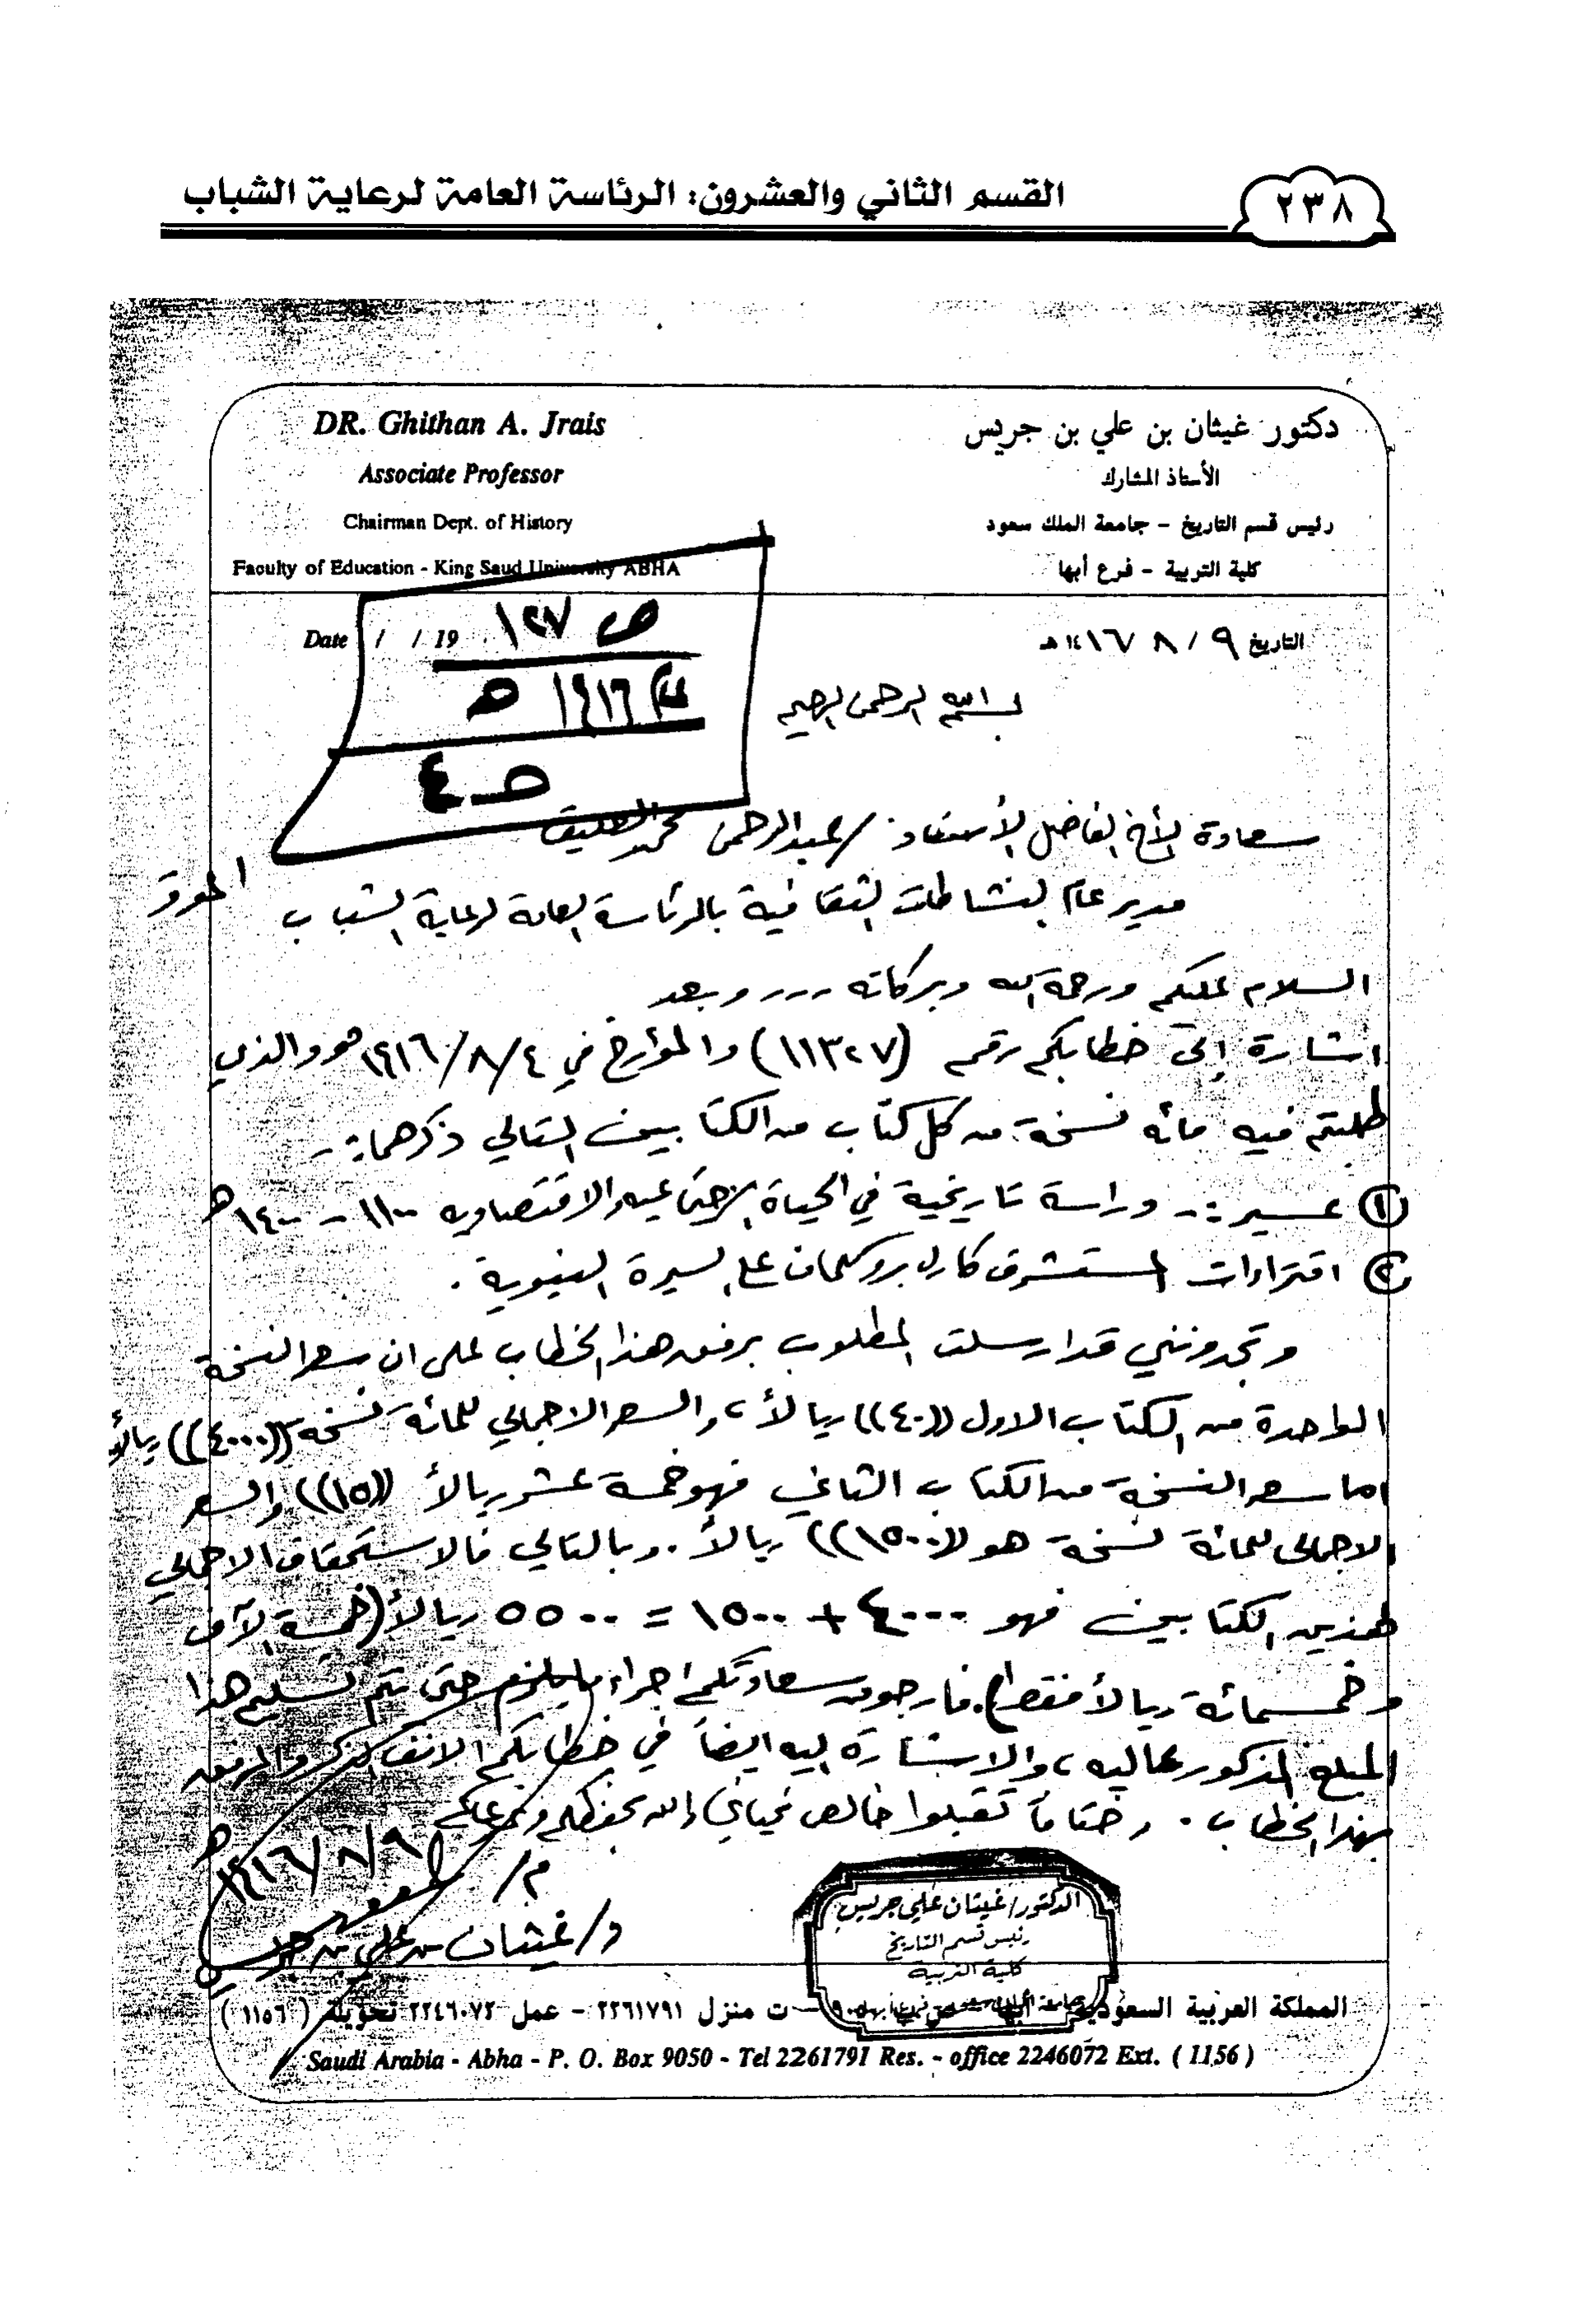 القسم الثاني والعشرون: الرئاسة العامة لرعاية الشباب
٢٣٨
DR. Ghithan A. Jrais
Associate Professor
Chairman Dept. of History
Faculty of Education - King Saud University ABHA
دكتور غيثان بن علي بن جريس
الأستاذ المشارك
رئيس قسم التاريخ - جامعة الملك سعود
كلية التربية - فرع أبها
Date / / 19
التاريخ ٩ / ٨ / ١٤١٦ هـ
ص ١٢٧
١٤١٦ هـ
صـ ٤
بسم الله الرحمن الرحيم
سعادة الأخ الفاضل الأستاذ / عبدالرحمن محمد العليق
مدير عام النشاطات الثقافية بالرئاسة العامة لرعاية الشباب الموقر
السلام عليكم ورحمة الله وبركاته ... وبعد
اشارة إلى خطابكم رقم (١١٣٢٧) والمؤرخ في ٤/٨/١٤١٦هـ والذي
طلبتم فيه مائه نسخة من كل كتاب من الكتابين التالي ذكرهما:-
(١) عسير :- دراسة تاريخية في الحياة الاجتماعيه والاقتصاديه ١١٠٠ - ١٤٠٠هـ
(٢) افتراءات المستشرق كارل بروكلمان على السيرة النبوية .
وتجدونني قد ارسلت المطلوب برفق هذا الخطاب على ان سعر النسخة
الواحدة من الكتاب الاول ((٤٠)) ريالاً، والسعر الاجمالي للمائة نسخة ((٤٠٠٠)) ريالاً
اما سعر النسخة من الكتاب الثاني فهو خمسة عشر ريالاً ((١٥)) والسعر
الاجمالي للمائة نسخة هو ((١٥٠٠)) ريالاً. وبالتالي فالاستحقاق الاجمالي
لهذين الكتابين فهو ٤٠٠٠ + ١٥٠٠ = ٥٥٠٠ ريالاً (خمسة الآف
وخمسمائة ريالاً فقط). فارجو من سعادتكم اجراء ما يلزم حتى يتم تسليم هذا
المبلغ المذكور عاليه، والاشارة اليه ايضاً في خطابكم الانف الذكر والمرفق
بهذا الخطاب . وختاماً تقبلوا خالص تحياتي والله يحفظكم ويرعاكم
٩/٨/١٤١٦هـ
د/ غيثان بن علي بن جريس
الدكتور/ غيثان علي جريس
رئيس قسم التاريخ
كلية التربية
المملكة العربية السعودية - أبها ت منزل ٢٢٦١٧٩١ - عمل ٢٢٤٦٠٧٢ تحويلة ( ١١٥٦ )
Saudi Arabia - Abha - P. O. Box 9050 - Tel 2261791 Res. - office 2246072 Ext. ( 1156 )